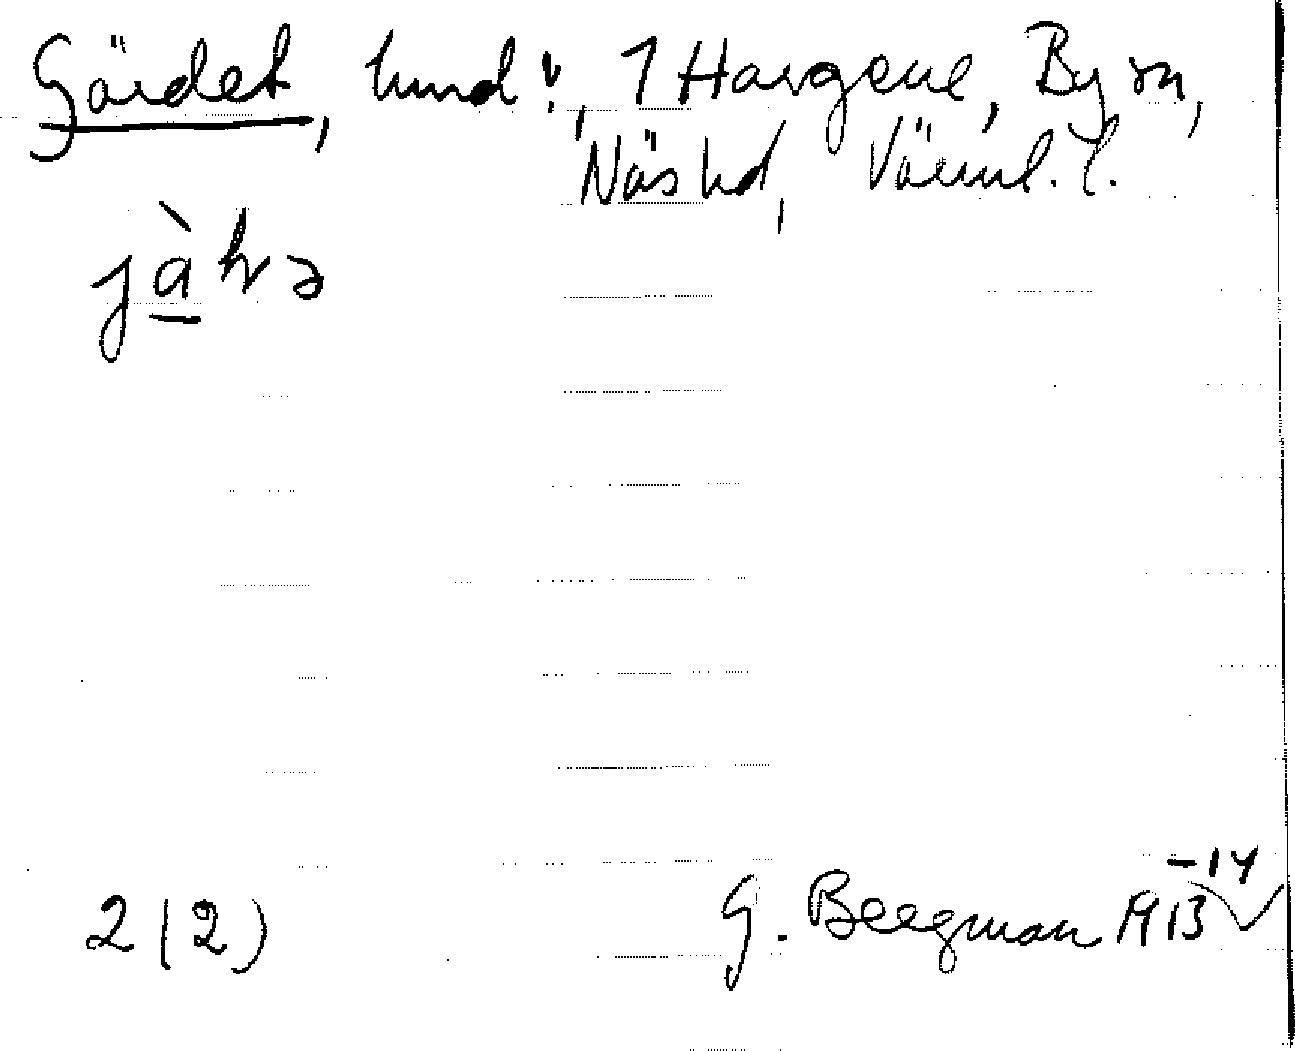 Gärdet, hmd?, 1 Hargene, By sn,
Näs hd, Värml. l.
jàhrə
2 (2)
G. Bergman 1913-14